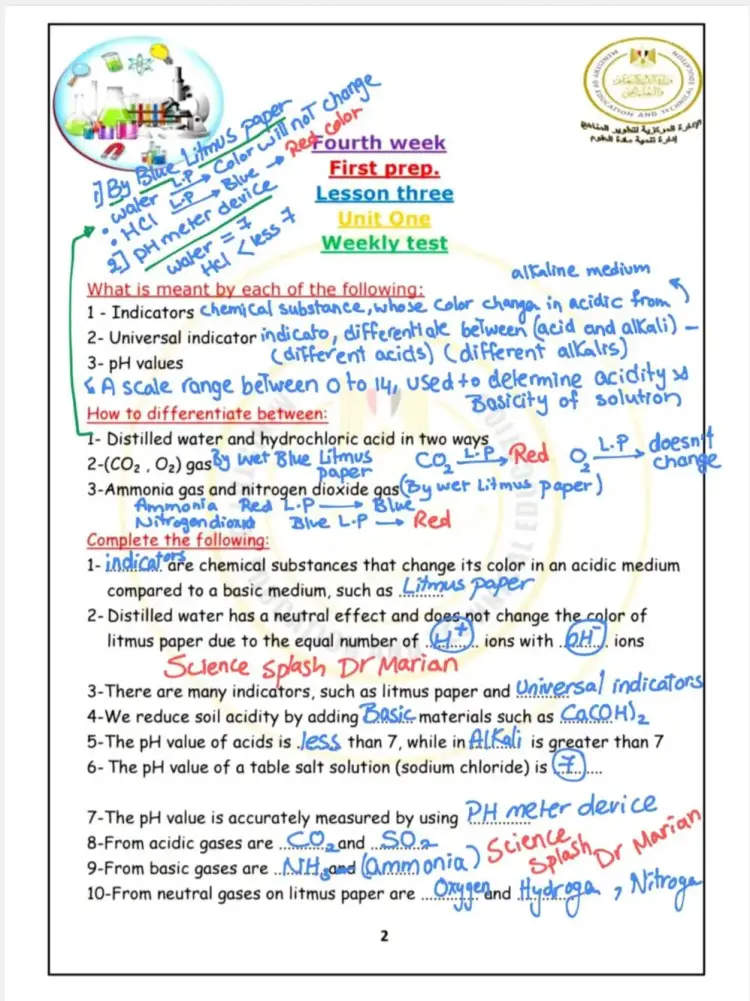 MINISTRY OF EDUCATION AND TECHNICAL EDUCATION
الإدارة المركزية لتطوير المناهج
إدارة تنمية مادة العلوم
1) By Blue Litmus paper
• water L.P → Color will not change
• HCl L.P → Blue → Red color
2) pH meter device
water = 7
HCl < less 7
Fourth week
First prep.
Lesson three
Unit One
Weekly test
alkaline medium
What is meant by each of the following:
1 - Indicators chemical substance, whose color change in acidic from
2- Universal indicator indicato, differentiale between (acid and alkali) –
(different acids) (different alkalis)
3- pH values
A scale range between 0 to 14, used to determine acidity
Basicity of solution
How to differentiate between:
1- Distilled water and hydrochloric acid in two ways
2-(CO₂ , O₂) gas By wet Blue Litmus paper CO₂ L.P → Red O₂ L.P → doesn't change
3-Ammonia gas and nitrogen dioxide gas (By wet Litmus paper)
Ammonia Red L.P → Blue
Nitrogen dioxid Blue L.P → Red
Complete the following:
1- indicators are chemical substances that change its color in an acidic medium
compared to a basic medium, such as Litmus paper
2- Distilled water has a neutral effect and does not change the color of
litmus paper due to the equal number of H⁺ ions with OH⁻ ions
Science Splash Dr Marian
3-There are many indicators, such as litmus paper and Universal indicators
4-We reduce soil acidity by adding Basic materials such as Ca(OH)₂
5-The pH value of acids is less than 7, while in Alkali is greater than 7
6- The pH value of a table salt solution (sodium chloride) is 7
7-The pH value is accurately measured by using PH meter device
8-From acidic gases are CO₂ and SO₂
9-From basic gases are NH₃ and (Ammonia)
Science Splash Dr Marian
10-From neutral gases on litmus paper are Oxygen and Hydroga , Nitroga
2